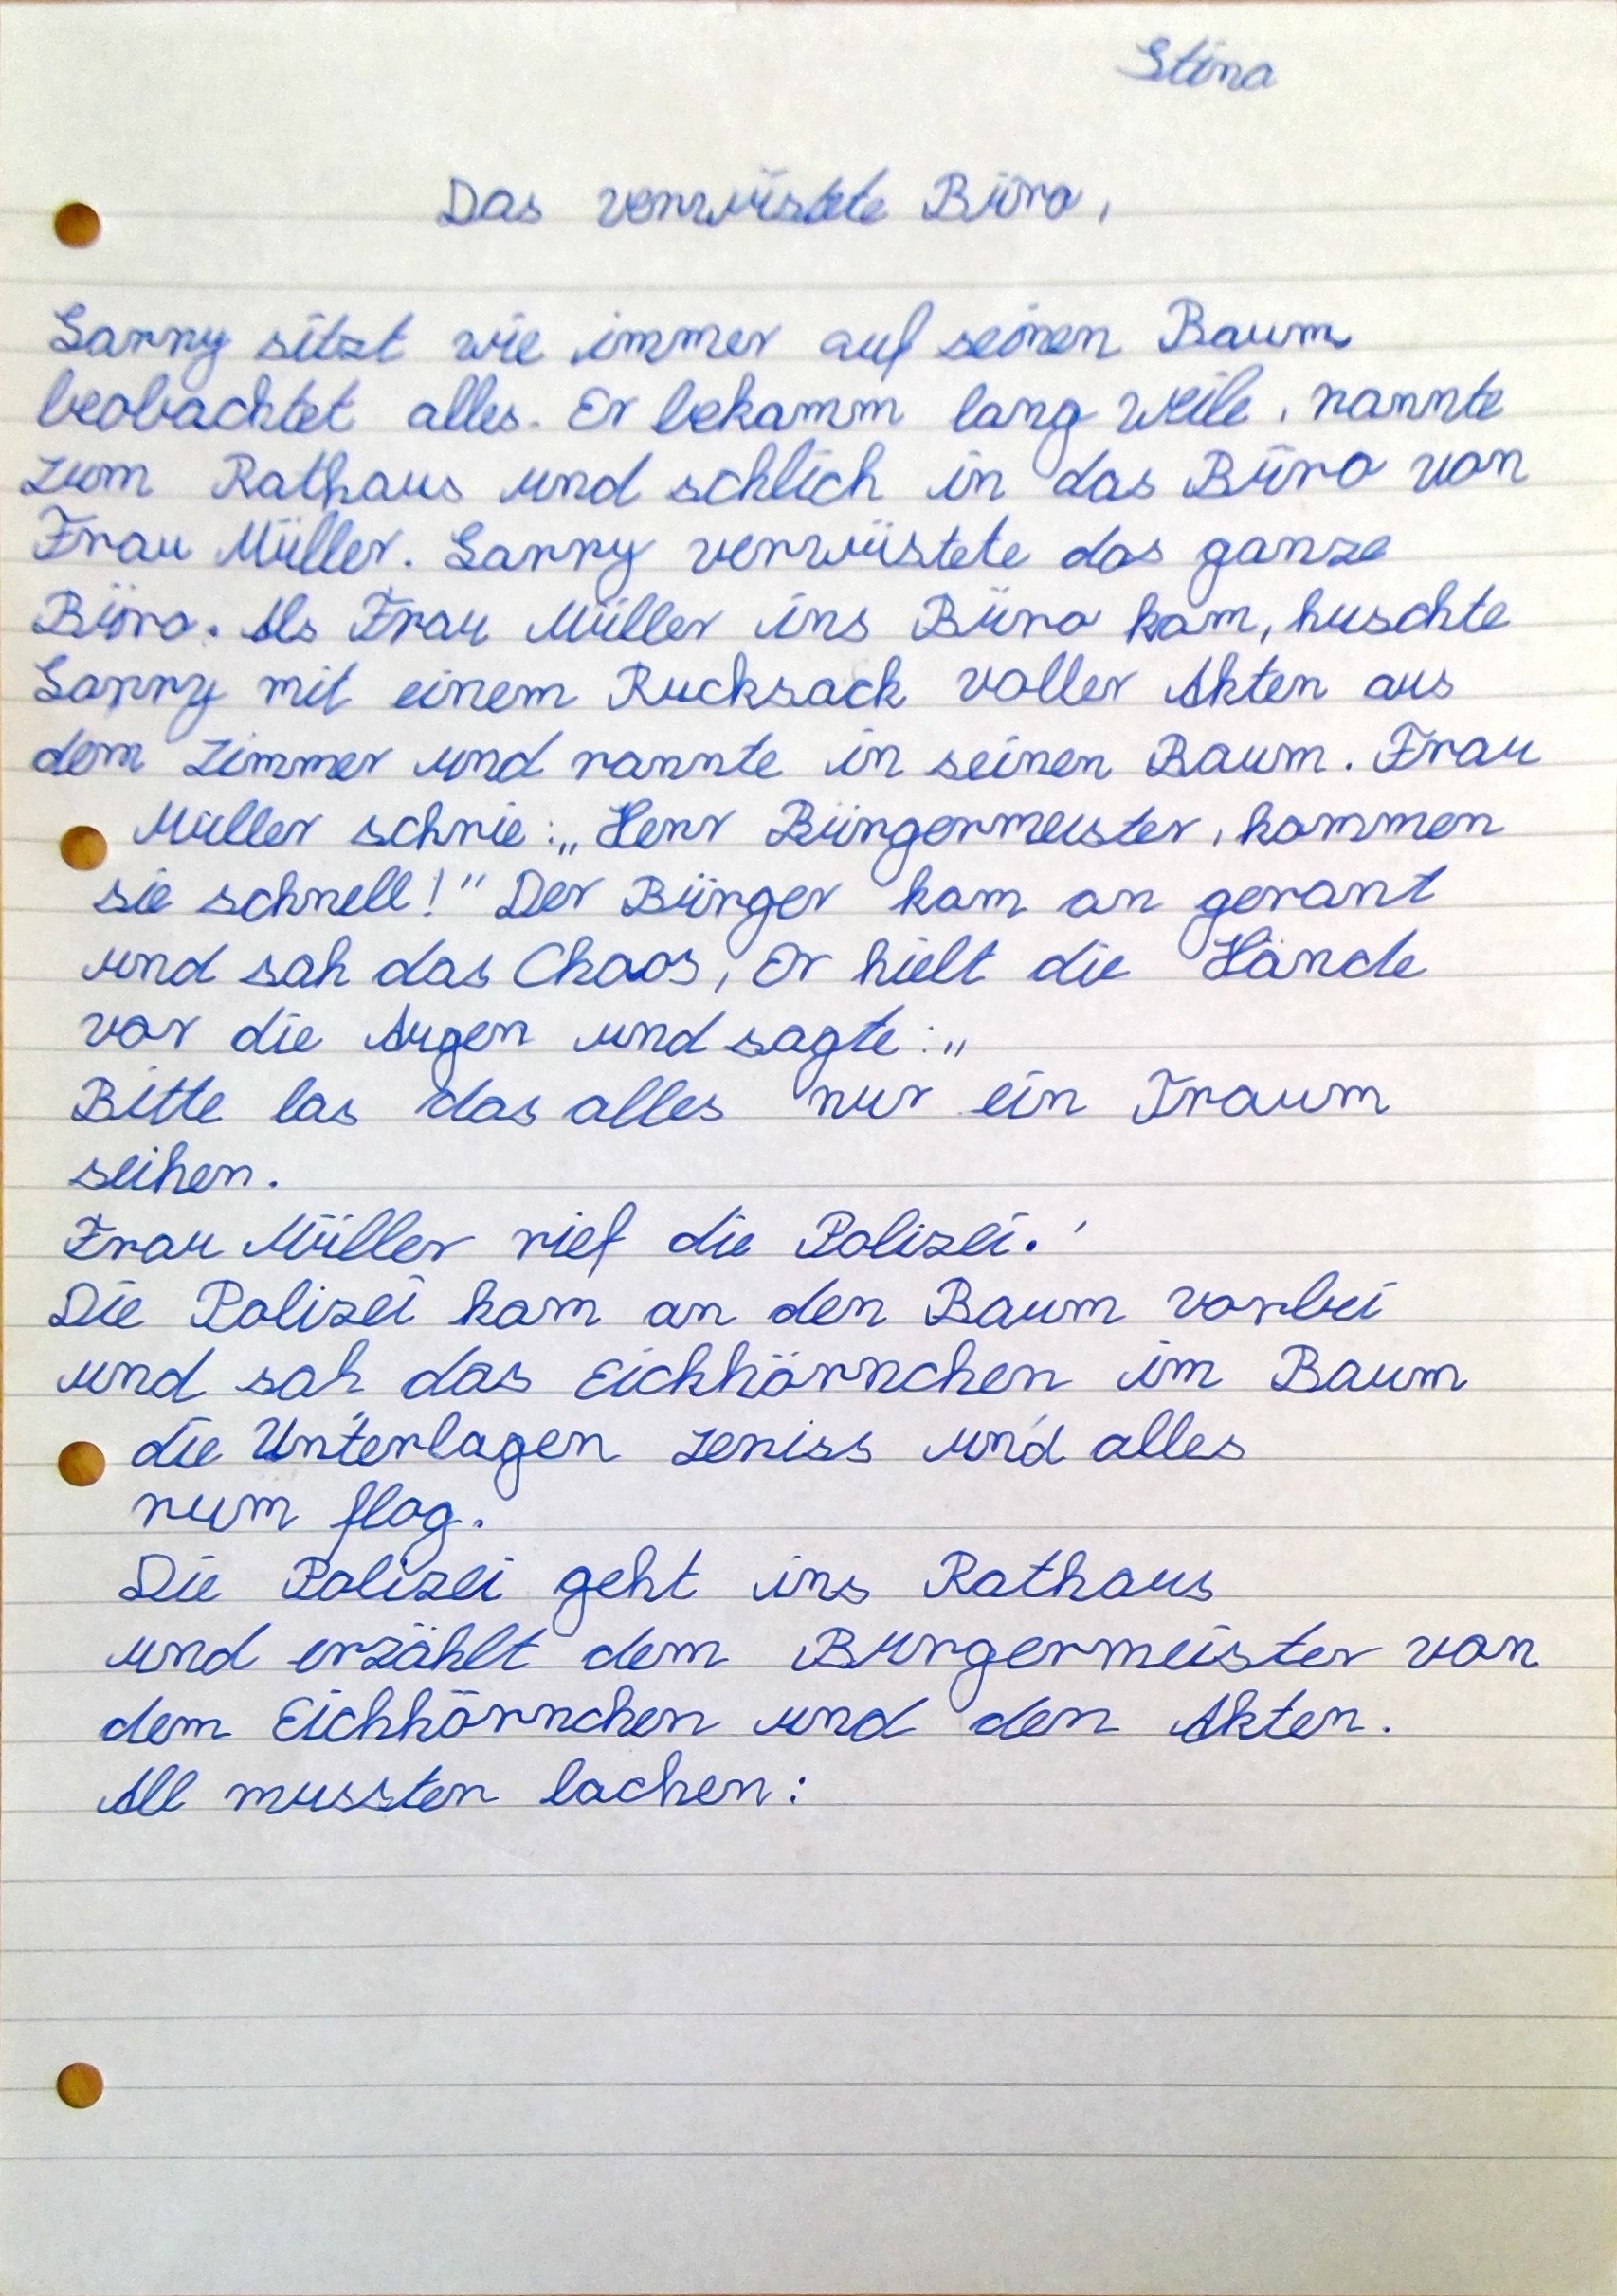 Stina
Das verwüstete Büro,
Larry sitzt wie immer auf seinen Baum
beobachtet alles. Er bekamm lang weile, rannte
zum Rathaus und schlich in das Büro von
Frau Müller. Larry verwüstete das ganze
Büro. Als Frau Müller ins Büro kam, huschte
Larry mit einem Rucksack voller Akten aus
dem Zimmer und rannte in seinen Baum. Frau
Müller schrie: „Herr Bürgermeister, kommen
sie schnell!" Der Bürger kam an gerant
und sah das Chaos, Er hielt die Hände
vor die Augen und sagte: „
Bitte las das alles nur ein Traum
seihen.
Frau Müller rief die Polizei.'
Die Polizei kam an den Baum vorbei
und sah das Eichhörnchen im Baum
die Unterlagen zeriss und alles
rum flog.
Die Polizei geht ins Rathaus
und erzählt dem Burgermeister von
dem Eichhörnchen und den Akten.
All mussten lachen: